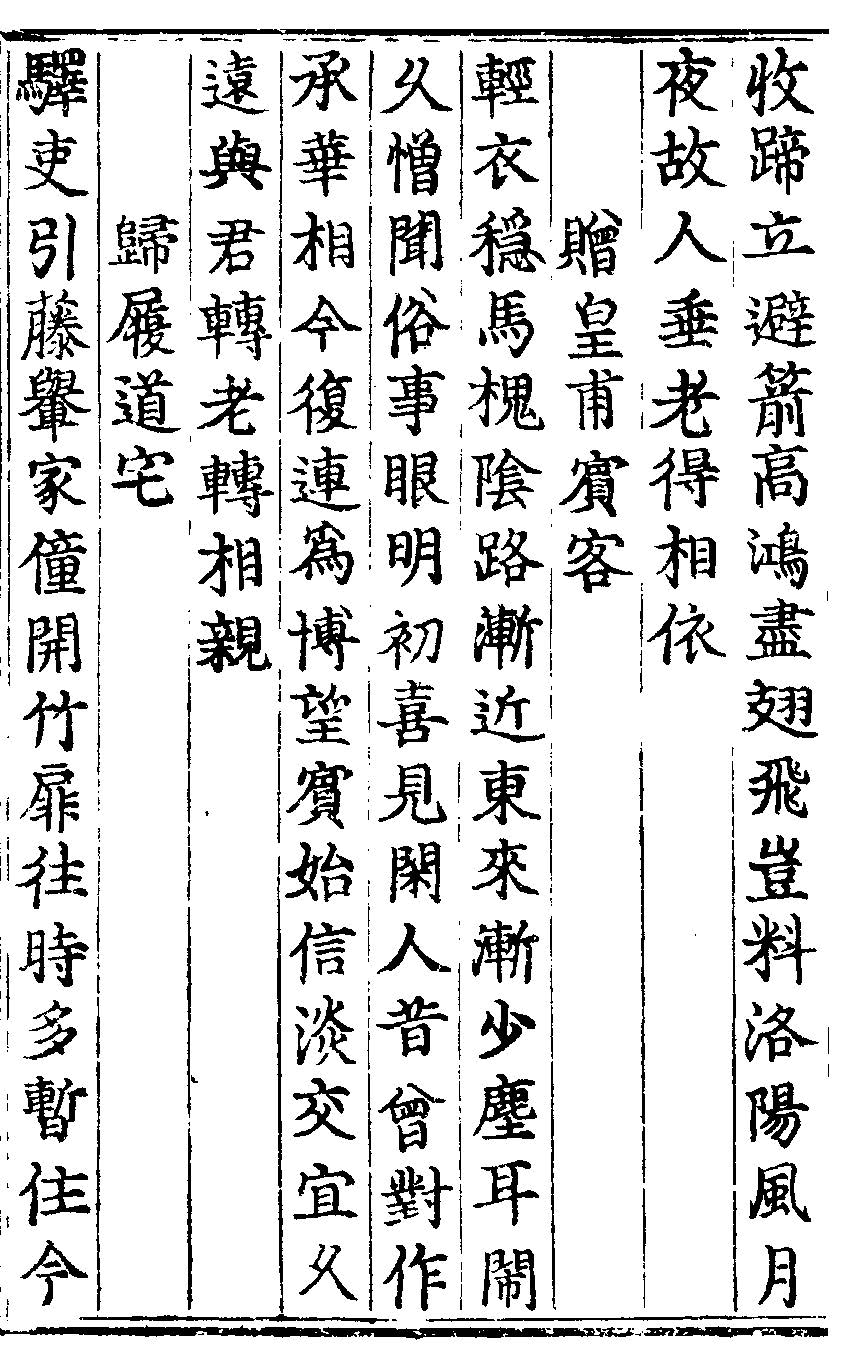 收蹄立避箭高鴻盡翅飛豈料洛陽風月
夜故人垂老得相依
贈皇甫賓客
輕衣穩馬槐陰路漸近東來漸少塵耳鬧
久憎聞俗事眼明初喜見閑人昔曾對作
承華相今復連爲博望賓始信淡交宜久
遠與君轉老轉相親
歸履道宅
驛吏引藤轝家僮開竹扉往時多暫住今